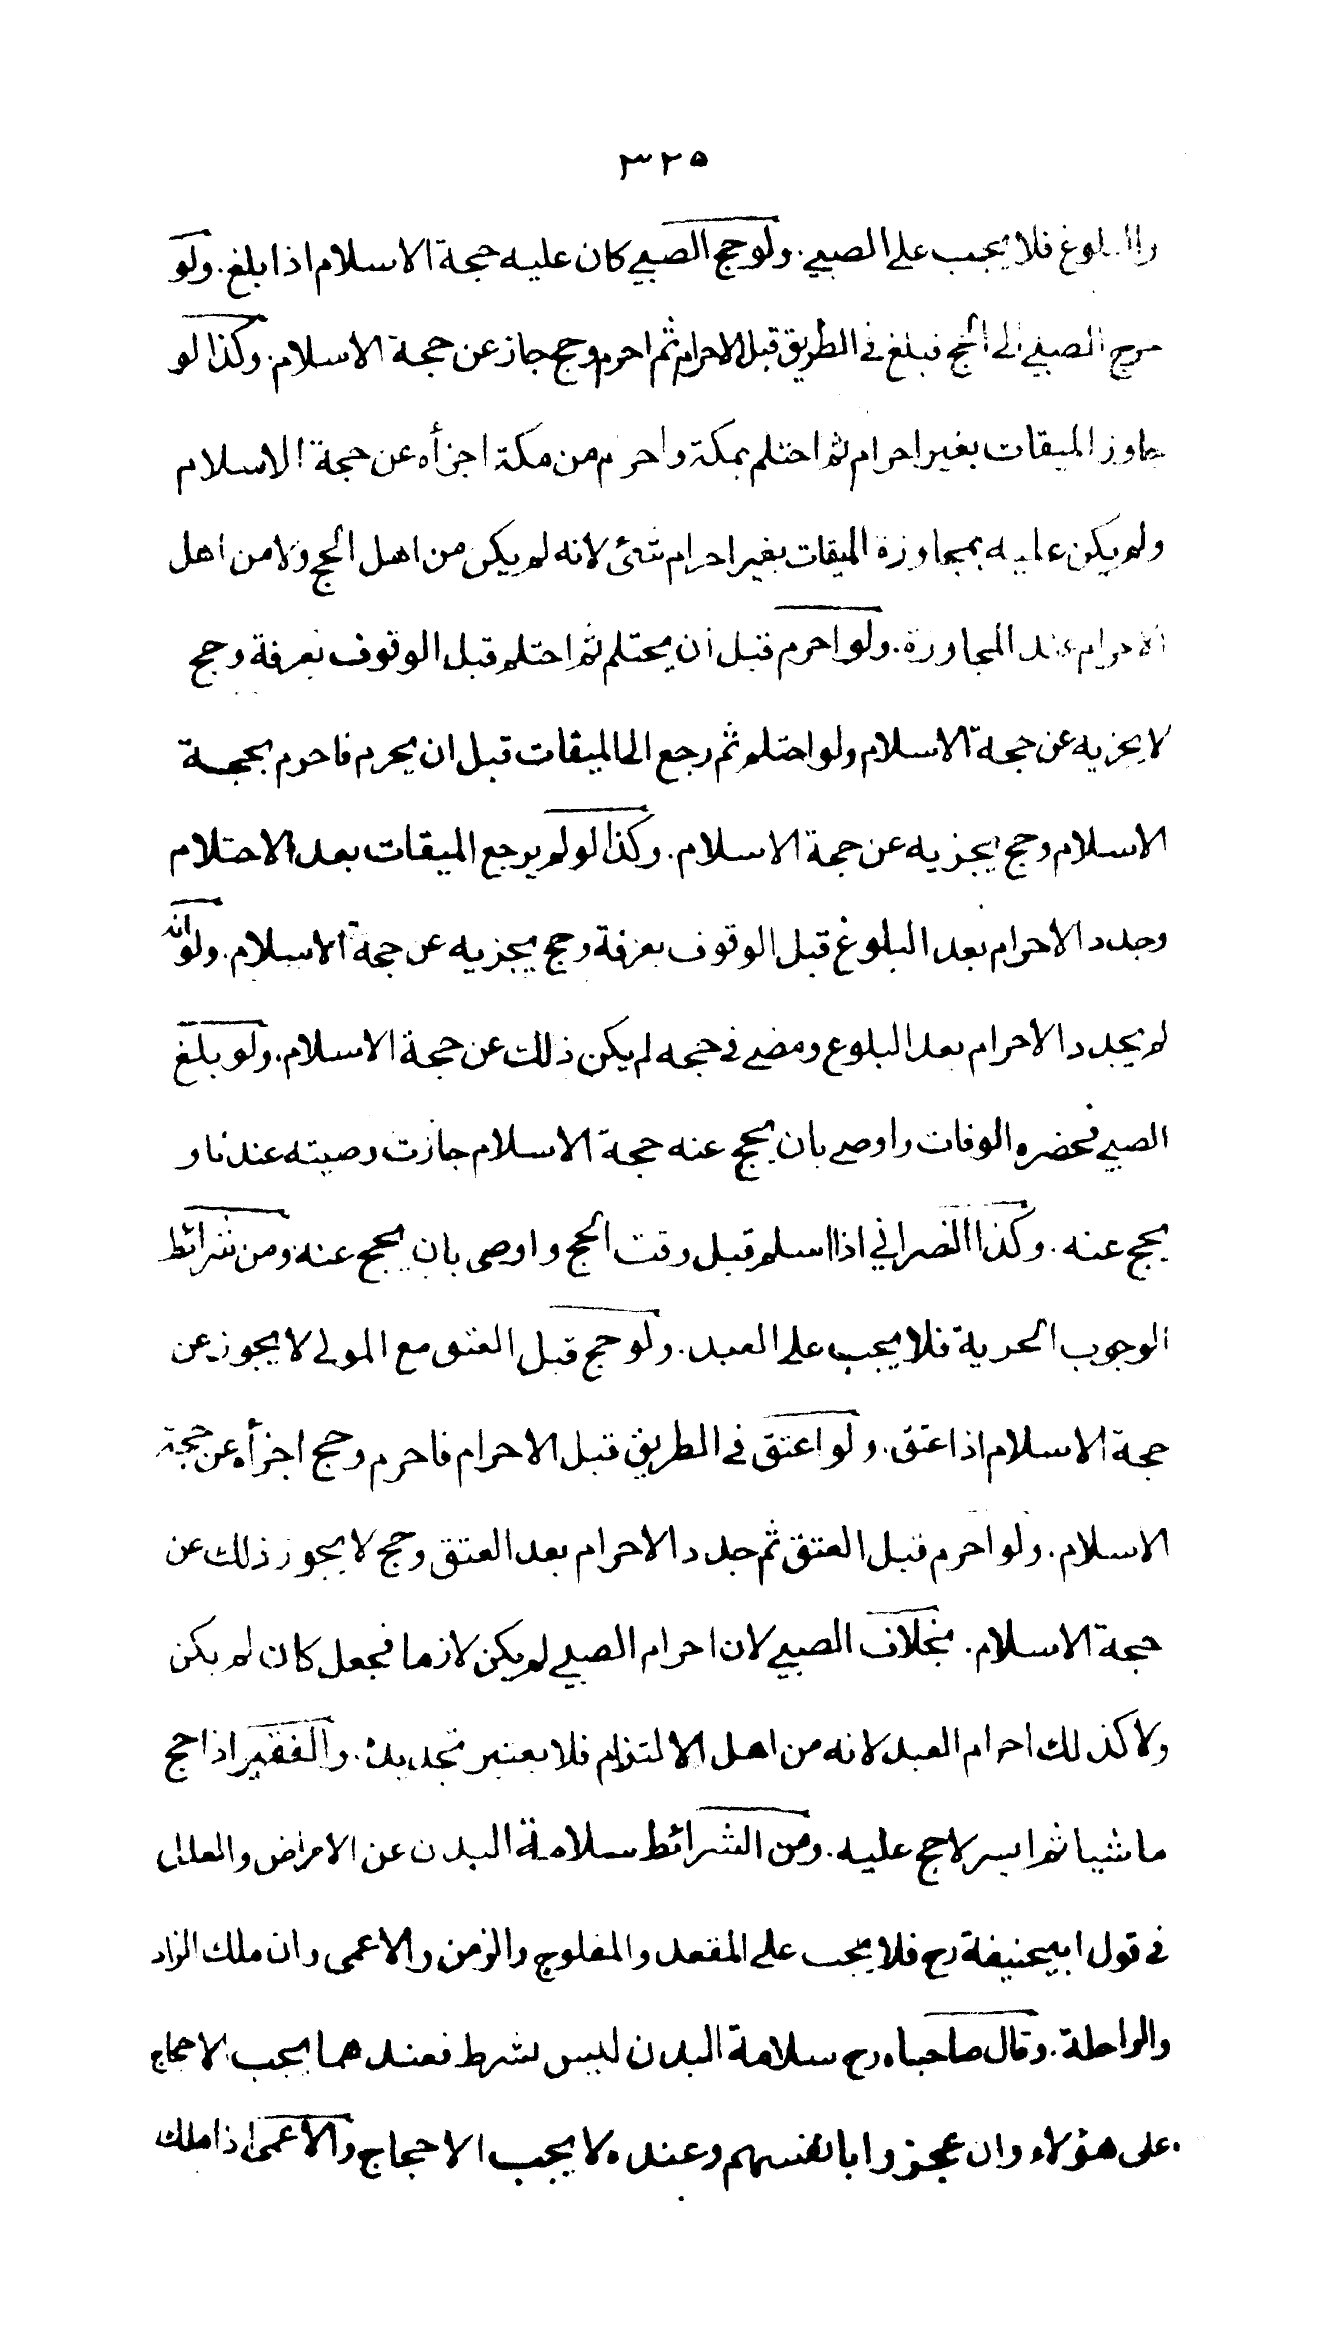 ٣٢٥
والبلوغ فلا يجب على الصبي. ولو حج الصبي كان عليه حجة الاسلام اذا بلغ. ولو
خرج الصبي الى الحج فبلغ في الطريق قبل الاحرام ثم احرم وحج جاز عن حجة الاسلام. وكذا لو
جاوز الميقات بغير احرام ثم احتلم بمكة واحرم من مكة اجزأه عن حجة الاسلام
ولم يكن عليه بمجاوزة الميقات بغير احرام شئ لانه لم يكن من اهل الحج ولا من اهل
الاحرام عند المجاورة. ولو احرم قبل أن يحتلم ثم احتلم قبل الوقوف بعرفة وحج
لا يجزيه عن حجة الاسلام ولو احتلم ثم رجع الى الميقات قبل ان يحرم فاحرم بحجة
الاسلام وحج يجزيه عن حجة الاسلام. وكذا لو لم يرجع الميقات بعد الاحتلام
وجدد الاحرام بعد البلوغ قبل الوقوف بعرفة وحج يجزيه عن حجة الاسلام. ولو انه
لم يجدد الاحرام بعد البلوع ومضى في حجه لم يكن ذلك عن حجة الاسلام. ولو بلغ
الصبي فحضره الوفات واوصى بان يحج عنه حجة الاسلام جازت وصيته عندنا و
يحج عنه. وكذا النصراني اذا اسلم قبل وقت الحج واوصى بان يحج عنه ومن شرائط
الوجوب الحرية فلا يجب على العبد. ولو حج قبل العتق مع المولى لا يجوز عن
حجة الاسلام اذا عتق. ولو اعتق في الطريق قبل الاحرام فاحرم وحج اجزأه عن حجة
الاسلام. ولو احرم قبل العتق ثم جدد الاحرام بعد العتق وحج لا يجوز ذلك عن
حجة الاسلام. بخلاف الصبي لان احرام الصبي لم يكن لازما فجعل كان لم يكن
ولا كذلك احرام العبد لانه من اهل الالتزام فلا يعتبر تجديده. والفقير اذا حج
ماشيا ثم ايسر لا حج عليه. ومن الشرائط سلامة البدن عن الامراض والعلل
في قول ابيحنيفة رح فلا يجب على المقعد والمفلوج والزمن والاعمى وان ملك الزاد
والراحلة. وقال صاحباه رح سلامة البدن ليس بشرط فعندهما يجب الاحجاج
على هؤلاء وان عجزوا بانفسهم وعنده لا يجب الاحجاج والاعمى اذا ملك